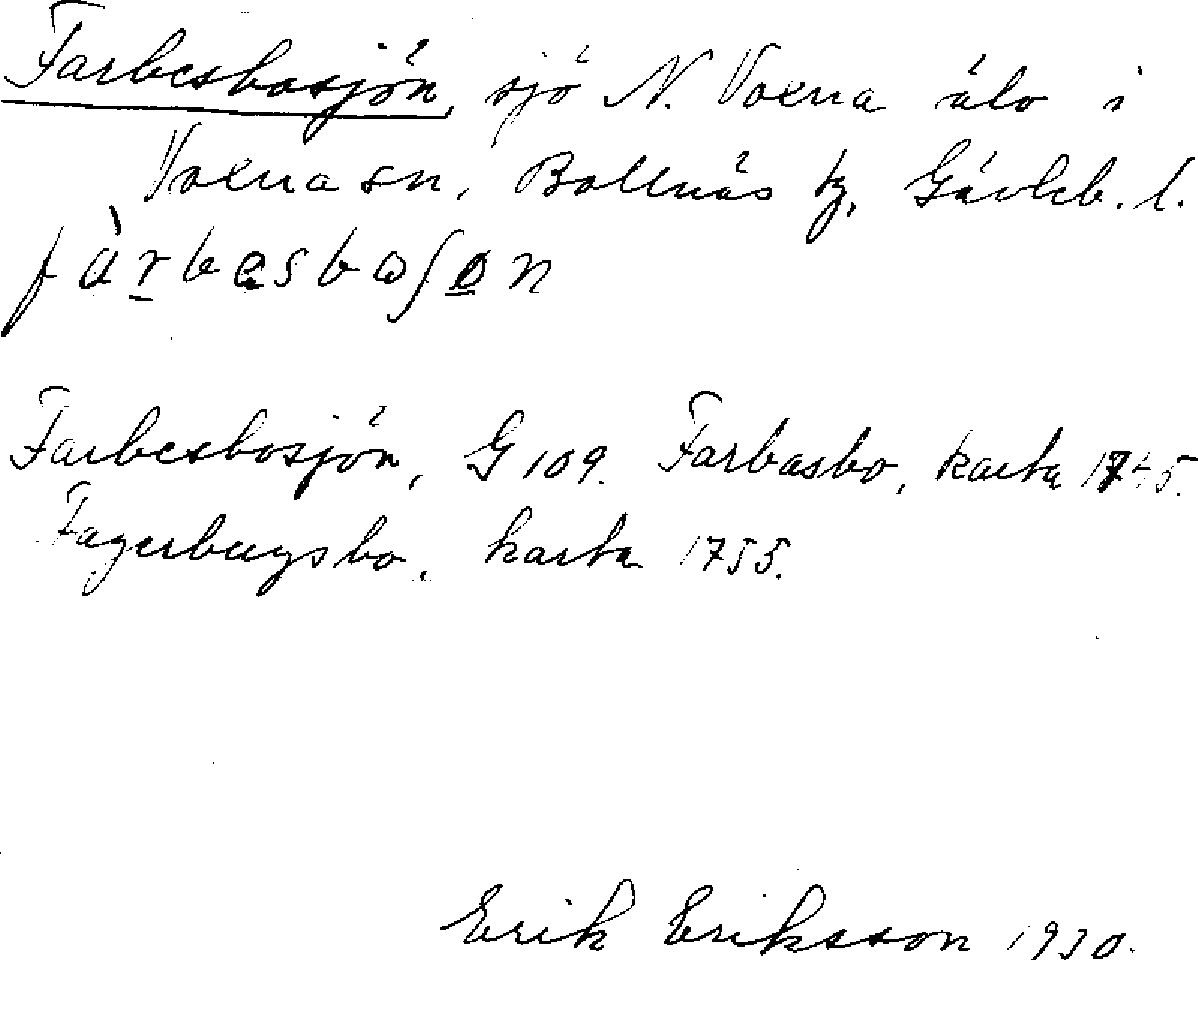 Farbesbosjön, sjö N. Voxna älv i
Voxna sn, Bollnäs tg, Gävleb. l.
fàrbesboʃøn
Farbesbosjön, G 109. Farbasbo, karta 1745.
Fagerbergsbo, karta 1755.
Erik Eriksson 1930.